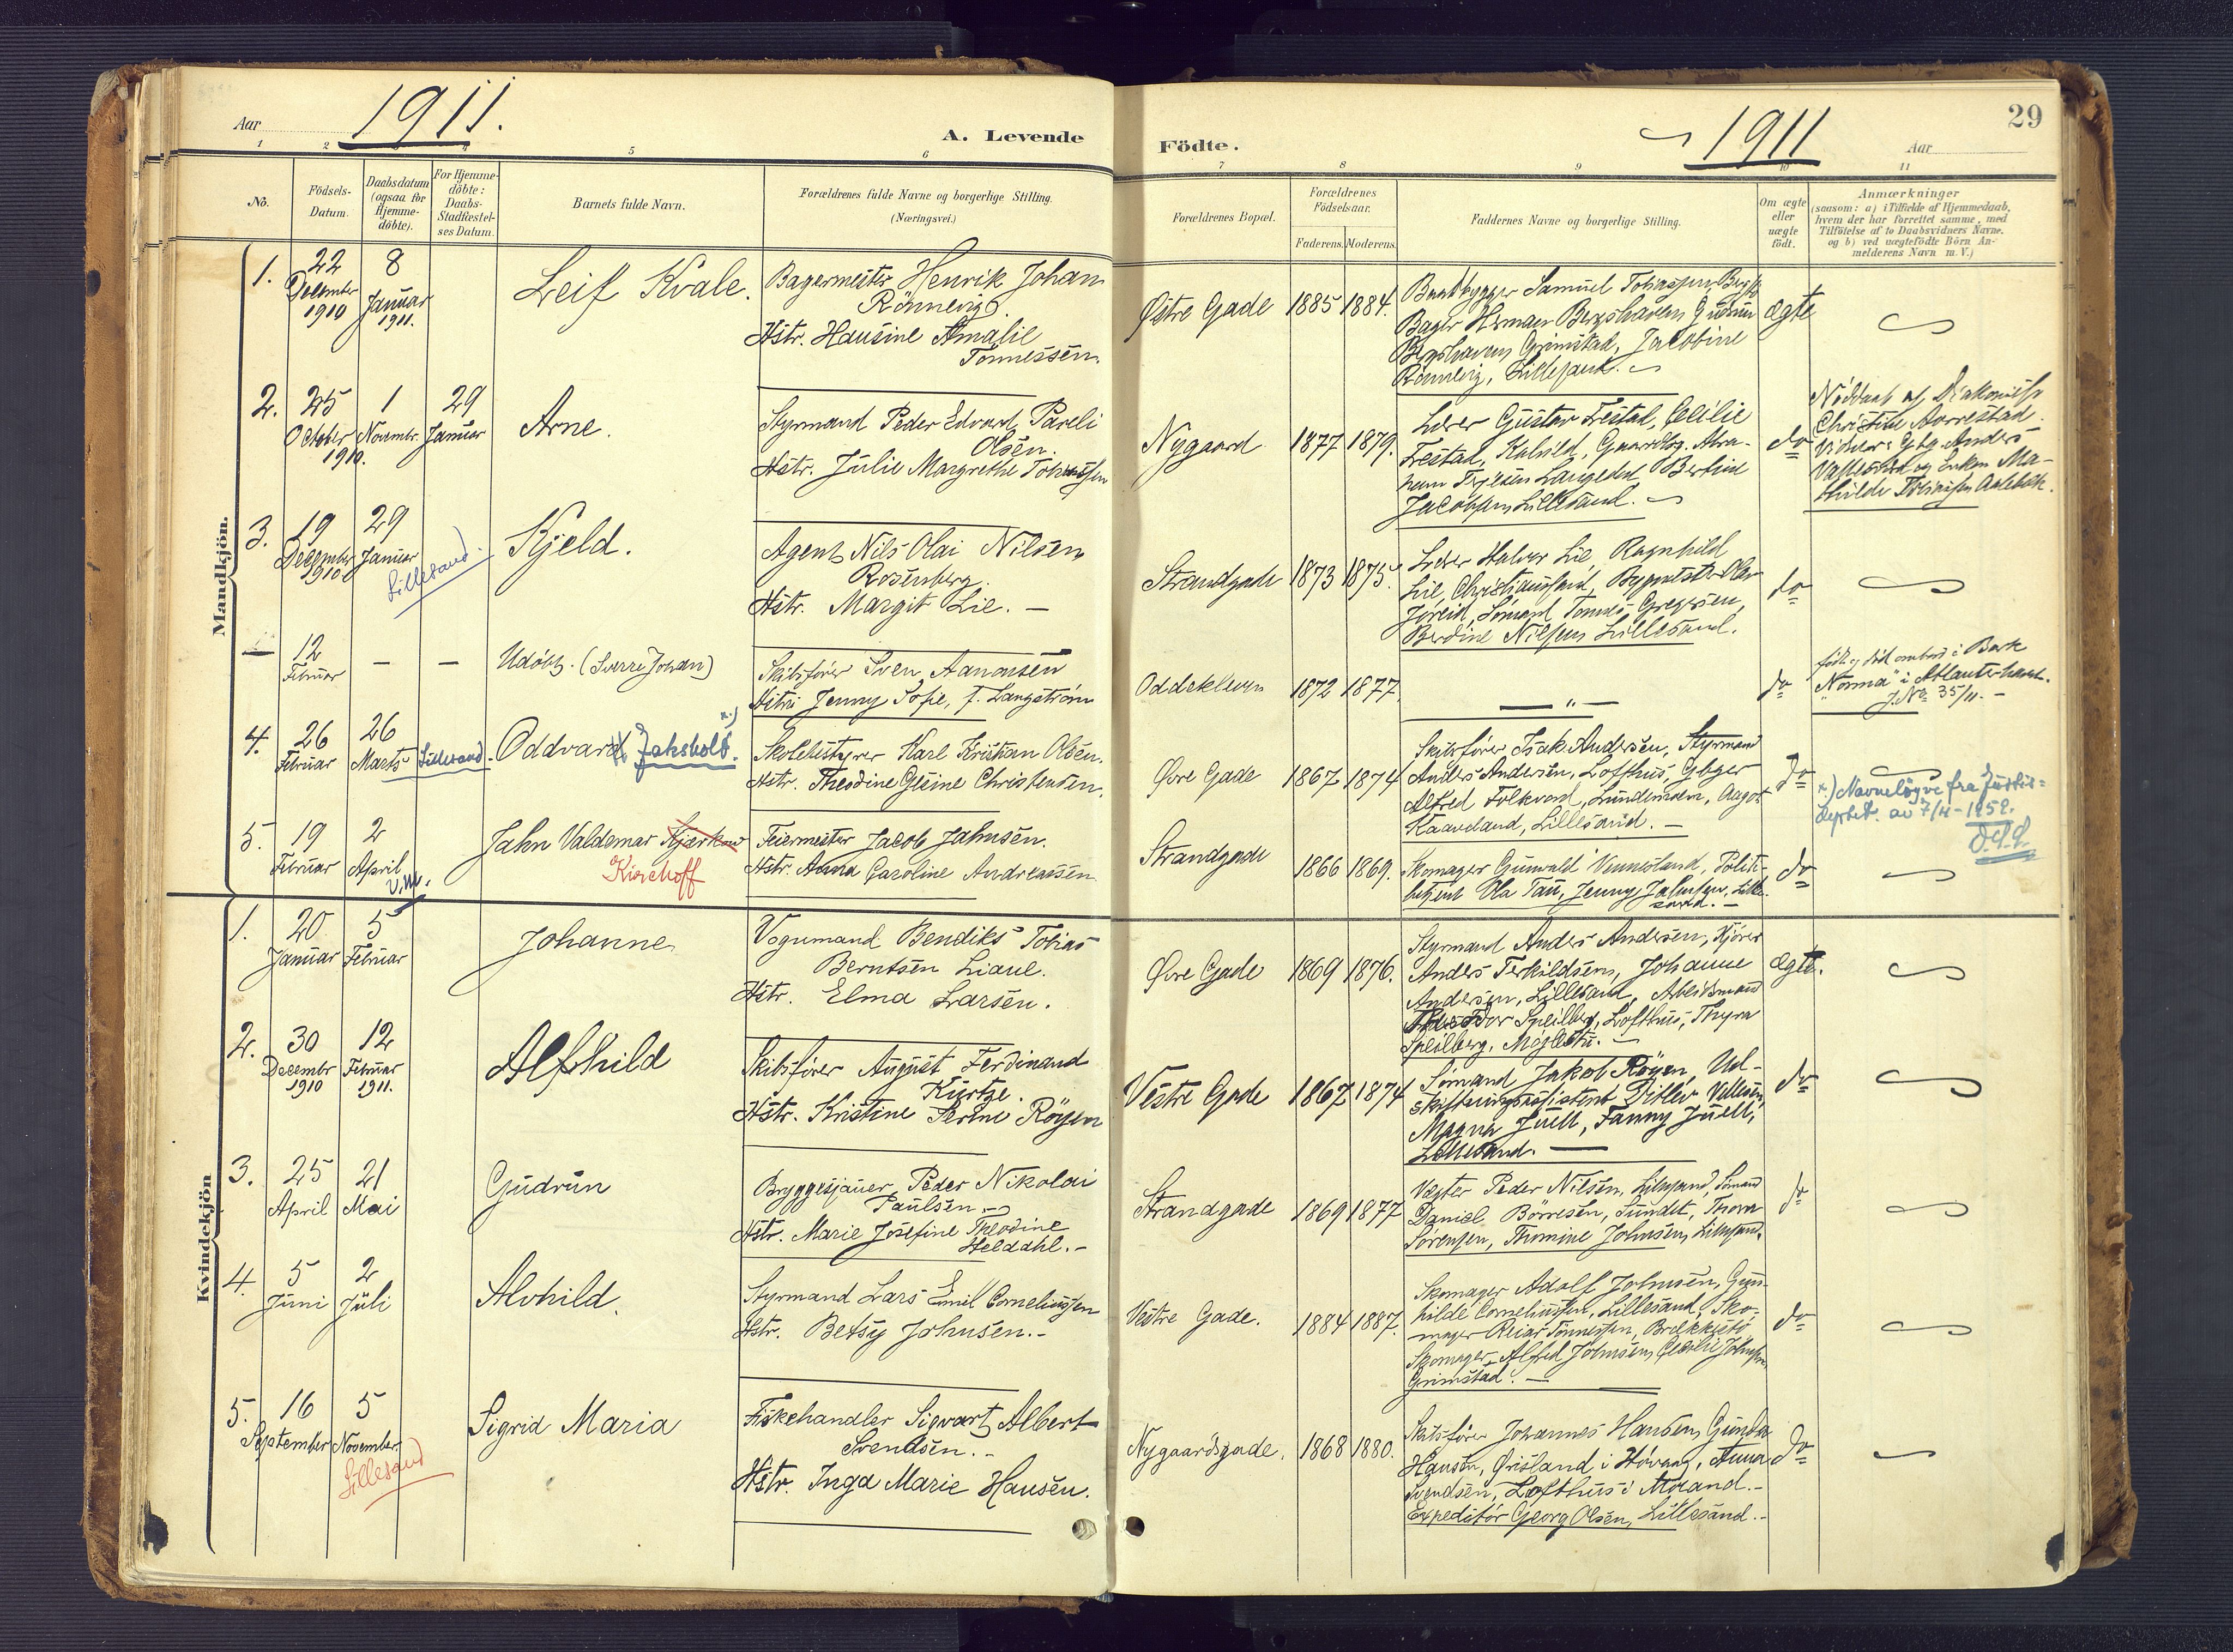 Aar 1911.
A. Levende
Födte.
1911
Aar
29
1 2 3 4 5 6 7 8 9 10 11
No.
Födsels-
Datum.
Daabsdatum
(ogsaa for
Hjemme-
döbte).
For Hjemme-
döbte:
Daabs-
Stadfæstel-
ses Datum.
Barnets fulde Navn.
Forældrenes fulde Navne og borgerlige Stilling.
(Næringsvei.)
Forældrenes Bopæl.
Forældrenes
Födselsaar.
Faderens. Moderens.
Faddernes Navne og borgerlige Stilling.
Om ægte
eller
uægte
födt.
Anmærkninger
(saasom: a) i Tilfælde af Hjemmedaab,
hvem der har forrettet samme, med
Tilföielse af to Daabsvidners Navne.
og b) ved uægtefödte Börn An-
melderens Navn m. V.)
Mandkjön.
1.
22
December
1910
8
Januar
1911.
Leif Kvale.
Bagermester Henrik Johan
Rönnevig.
Hstr. Hansine Amalie
Tönnessen.
Østre Gade
1885
1884.
Baadbygger Samuel
Bager Herman Bergshaven, Gudrun
Bergshaven Grimstad, Jacobine
Rönnevig, Lillesand.
ægte
2.
25
October
1910.
1
Novembr.
29
Januar
Arne.
Styrmand Peder Edvard Pareli
Olsen.
Hstr. Julie Margrethe
Nygaard
1877
1879.
Gustav Frestad, Cecilie
Frestad, Kalvild, Gaardbg. Abra-
ham Terjesen Langedal, Bertine
Jacobsen Lillesand.
do
Nöddaab af Diakonisse
Christine Aarrestad.
Vidner: Gbg. Anders
og Enken Ma-
thilde
3.
19
December
1910
29
Januar
Lillesand.
Kjeld.
Agent Nils Olai Nilsen
Rosenberg.
Hstr. Margit Lie. —
Strandgade
1873
1875.
Halvor Lie, Ragnhild
Lie, Christianssand,
Sömand Tönnes Gregersen,
Berdine Nilsen Lillesand.
do
—
12
Februar
—
—
Udöbt. (Sverre Johan)
Skibsförer Sven Aanonsen
Hstr. Jenny Sofie, f. Langström
Oddekleven
1872
1877.
— " —
do
födt og död ombord i Bark
"Norma" i Atlanterhavet.
J.No. 35/11. —
4.
26
Februar
26
Marts
Lillesand.
Oddvard Jaksholt. x.)
Skolebestyrer Karl Kristian Olsen.
Hstr. Theodine Christensen.
Øvre Gade
1867
1874
Skibsförer Isak Andersen, Styrmand
Anders Andersen, Lofthus, Gbger
Alfred Folkvord, Aagot
Kaaveland, Lillesand. —
do
x.) Navneløyve fra Justis-
dep.tet. av 7/4 - 1952.
5.
19
Februar
2
April
Jahn Valdemar Kjerkow
Kirchoff
Feiermester Jacob Jahnsen.
Hstr. Anna Caroline Andreassen
Strandgade
1866
1869.
Skomager Gunvald Vennesland, Politi-
betjent Ola Tau, Jenny Jahnsen, Lille-
sand. —
do
Kvindekjön
1.
20
Januar
5
Februar
Johanne
Vognmand Bendiks Tobias
Berntsen Liane.
Hstr. Elma Larsen.
Øvre Gade
1869
1876.
Styrmand Anders Andersen, Kjörer
Anders Terkildsen, Johanne
Andersen, Lillesand, Arbeidsmand
Theodor Speilberg, Lofthus, Thyra
Speilberg, Möglestu. —
ægte.
2.
30
Decembr
1910
12
Februar
1911.
Alfhild
Skibsförer August Ferdinand
Kurtze.
Hstr. Kristine Terine Röyen
Vestre Gade
1867
1874
Sömand Jakob Röyen, Ud-
skiftningsassistent Ditlev
Magna Juell, Fanny Juell,
Lillesand. —
do
3.
25
April
21
Mai
Gudrun
Bryggesjauer Peder Nikolai
Paulsen
Hstr. Marie Josefine Theodine
Helddahl. —
Strandgade
1869
1877
Vægter Peder Nilsen, Lillesand, Sömand
Daniel Börresen, Sundet, Thora
Sörensen, Thomine Johnsen, Lillesand.
do
4.
5
Juni
2
Juli
Alvhild.
Styrmand Lars Emil Corneliussen
Hstr. Betsy Johnsen. —
Vestre Gade.
1884
1887.
Skomager Adolf Johnsen, Gun-
hilde Corneliussen, Lillesand, Sko-
mager Reiar Tönnessen, Brækkestö
Skomager Alfred Johnsen, Cecilie Johnsen
Grimstad. —
do
5.
16
September
5
November.
Lillesand
Sigrid Maria
Fiskehandler Sigvart Albert
Svendsen. —
Hstr. Inga Marie Hansen.
Nygaardsgade.
1868
1880.
Skibsförer Johannes Hansen, Gunda
Hansen, Grisland i Hövaag, Anna
Svendsen, Lofthus i Moland. —
Expeditör Georg Olsen, Lillesand. —
do